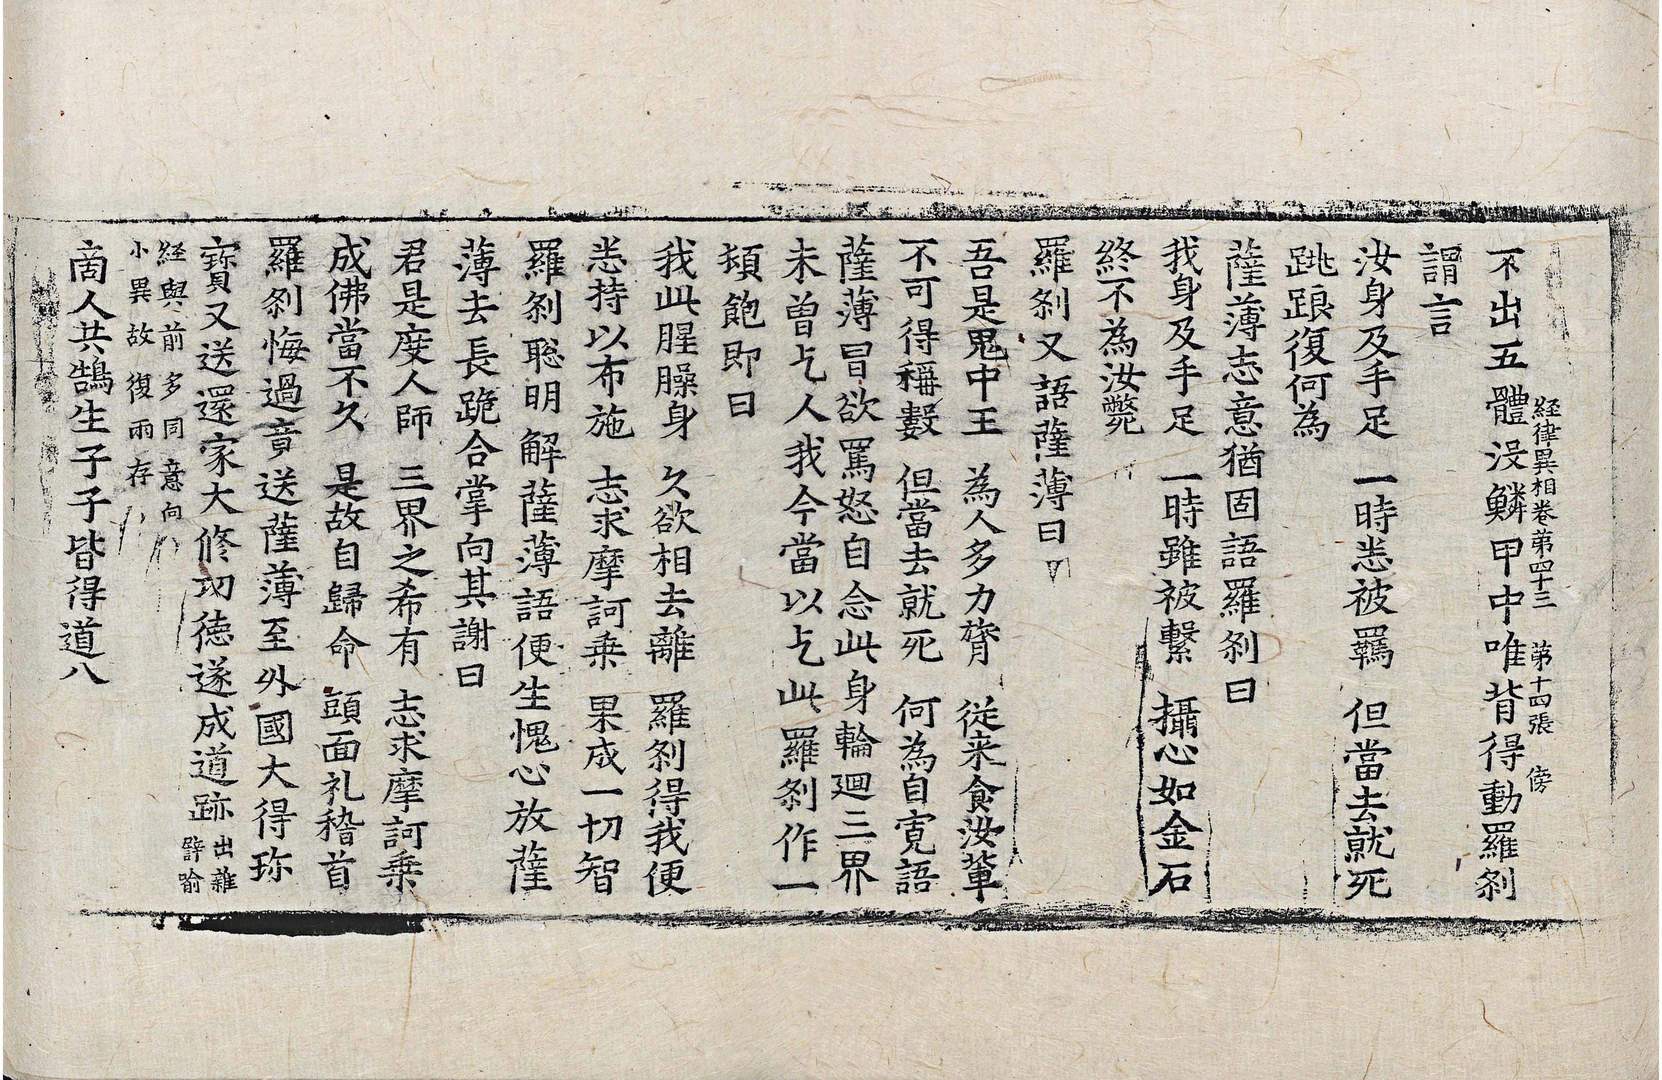 経律異相卷第四十三　第十四張　傍
不出五體没鱗甲中唯背得動羅刹
謂言
汝身及手足　一時恙被羈　但當去就死
跳踉復何為
薩薄志意猶固語羅刹曰
我身及手足　一時雖被繫　攝心如金石
終不為汝斃
羅刹又語薩薄曰
吾是鬼中王　為人多力膂　従来食汝輩
不可得稱數　但當去就死　何為自寛語
薩薄冒欲罵怒自念此身輪廻三界
未曽乞人我今當以乞此羅刹作一
頓飽即曰
我此腥臊身　久欲相去離　羅刹得我便
恙持以布施　志求摩訶乗　果成一切智
羅刹聡明解薩薄語便生愧心放薩
薄去長跪合掌向其謝曰
君是度人師　三界之希有　志求摩訶乗
成佛當不久　是故自歸命　頭面礼稽首
羅刹悔過竟送薩薄至外國大得珎
寳又送還家大修功徳遂成道跡出雜
譬喻
経與前多同意向
小異故復兩存
商人共鵠生子子皆得道八